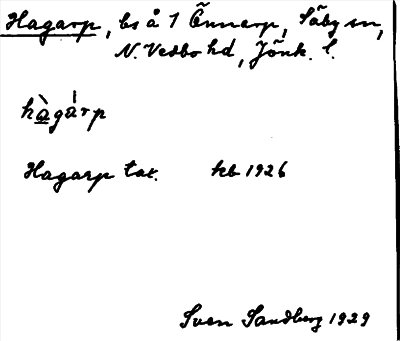 Hagarp, bs å 1 Õnnarp, Säby sn,
N. Vedbo hd, Jönk. l.
hàgárp
Hagarp tax. hb 1926
Sven Sandberg 1929